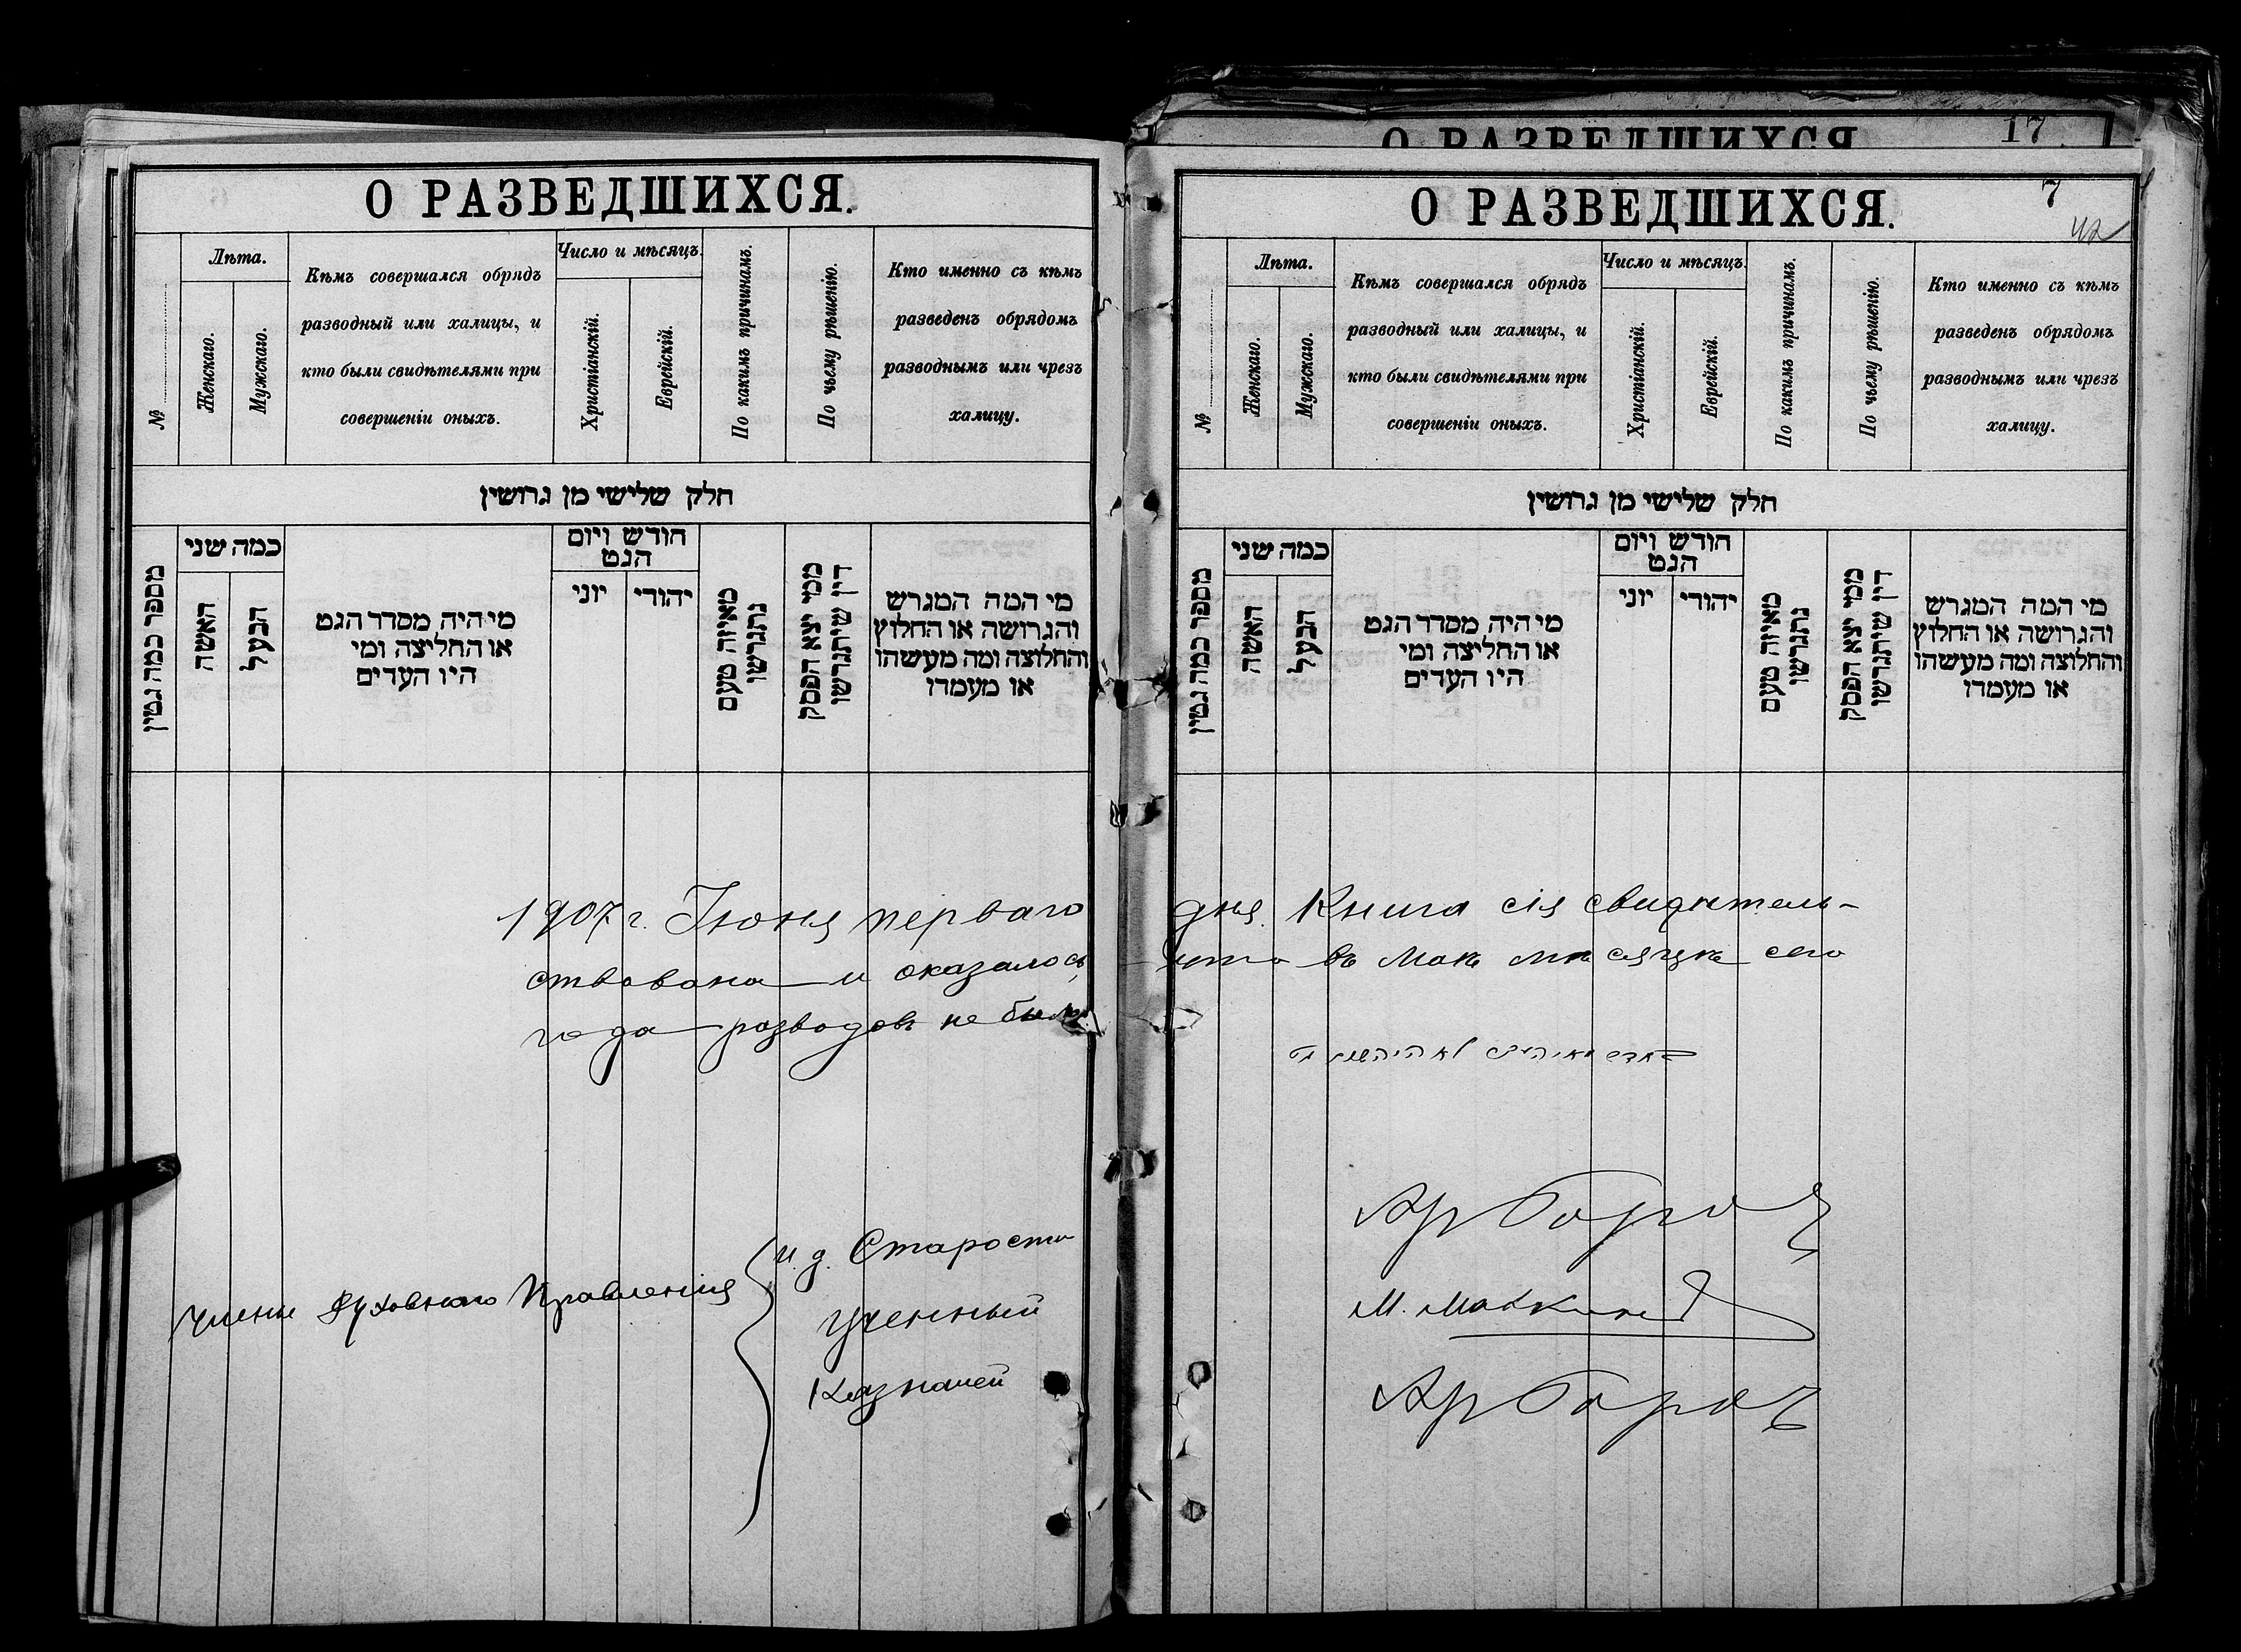 О РАЗВЕДШИХСЯ.
№
Лѣта.
Женскаго.
Мужскаго.
Кѣмъ совершался обрядъ
разводный или халицы, и
кто были свидѣтелями при
совершеніи оныхъ.
Число и мѣсяцъ.
Христіанскій.
Еврейскій.
По какимъ причинамъ.
По чьему рѣшенію.
Кто именно съ кѣмъ
разведенъ обрядомъ
разводнымъ или чрезъ
халицу.
חלק שלישי מן גרושין
מספר כמה גטין
כמה שני
האשה
הבעל
מי היה מסדר הגט
או החליצה ומי
היו העדים
חודש ויום
הגט
יוני
יהודי
מאיזה טעם
נתגרשו
ממי יצא הפסק
דין שיתגרשו
מי המה המגרש
והגרושה או החלוץ
והחלוצה ומה מעשהו
או מעמדו
О РАЗВЕДШИХСЯ
17
О РАЗВЕДШИХСЯ.
7
42
№
Лѣта.
Женскаго.
Мужскаго.
Кѣмъ совершался обрядъ
разводный или халицы, и
кто были свидѣтелями при
совершеніи оныхъ.
Число и мѣсяцъ.
Христіанскій.
Еврейскій.
По какимъ причинамъ.
По чьему рѣшенію.
Кто именно съ кѣмъ
разведенъ обрядомъ
разводнымъ или чрезъ
халицу.
חלק שלישי מן גרושין
מספר כמה גטין
כמה שני
האשה
הבעל
מי היה מסדר הגט
או החליצה ומי
היו העדים
חודש ויום
הגט
יוני
יהודי
מאיזה טעם
נתגרשו
ממי יצא הפסק
דין שיתגרשו
מי המה המגרש
והגרושה או החלוץ
והחלוצה ומה מעשהו
או מעמדו
1907 г. Іюня перваго дня. Книга сія свидѣтель-
ствована и оказалось, что въ Маѣ мѣсяцѣ сего
года разводовъ не было
Члены Духовнаго Правленія
и. д. Старосты
Ученный
Казначей